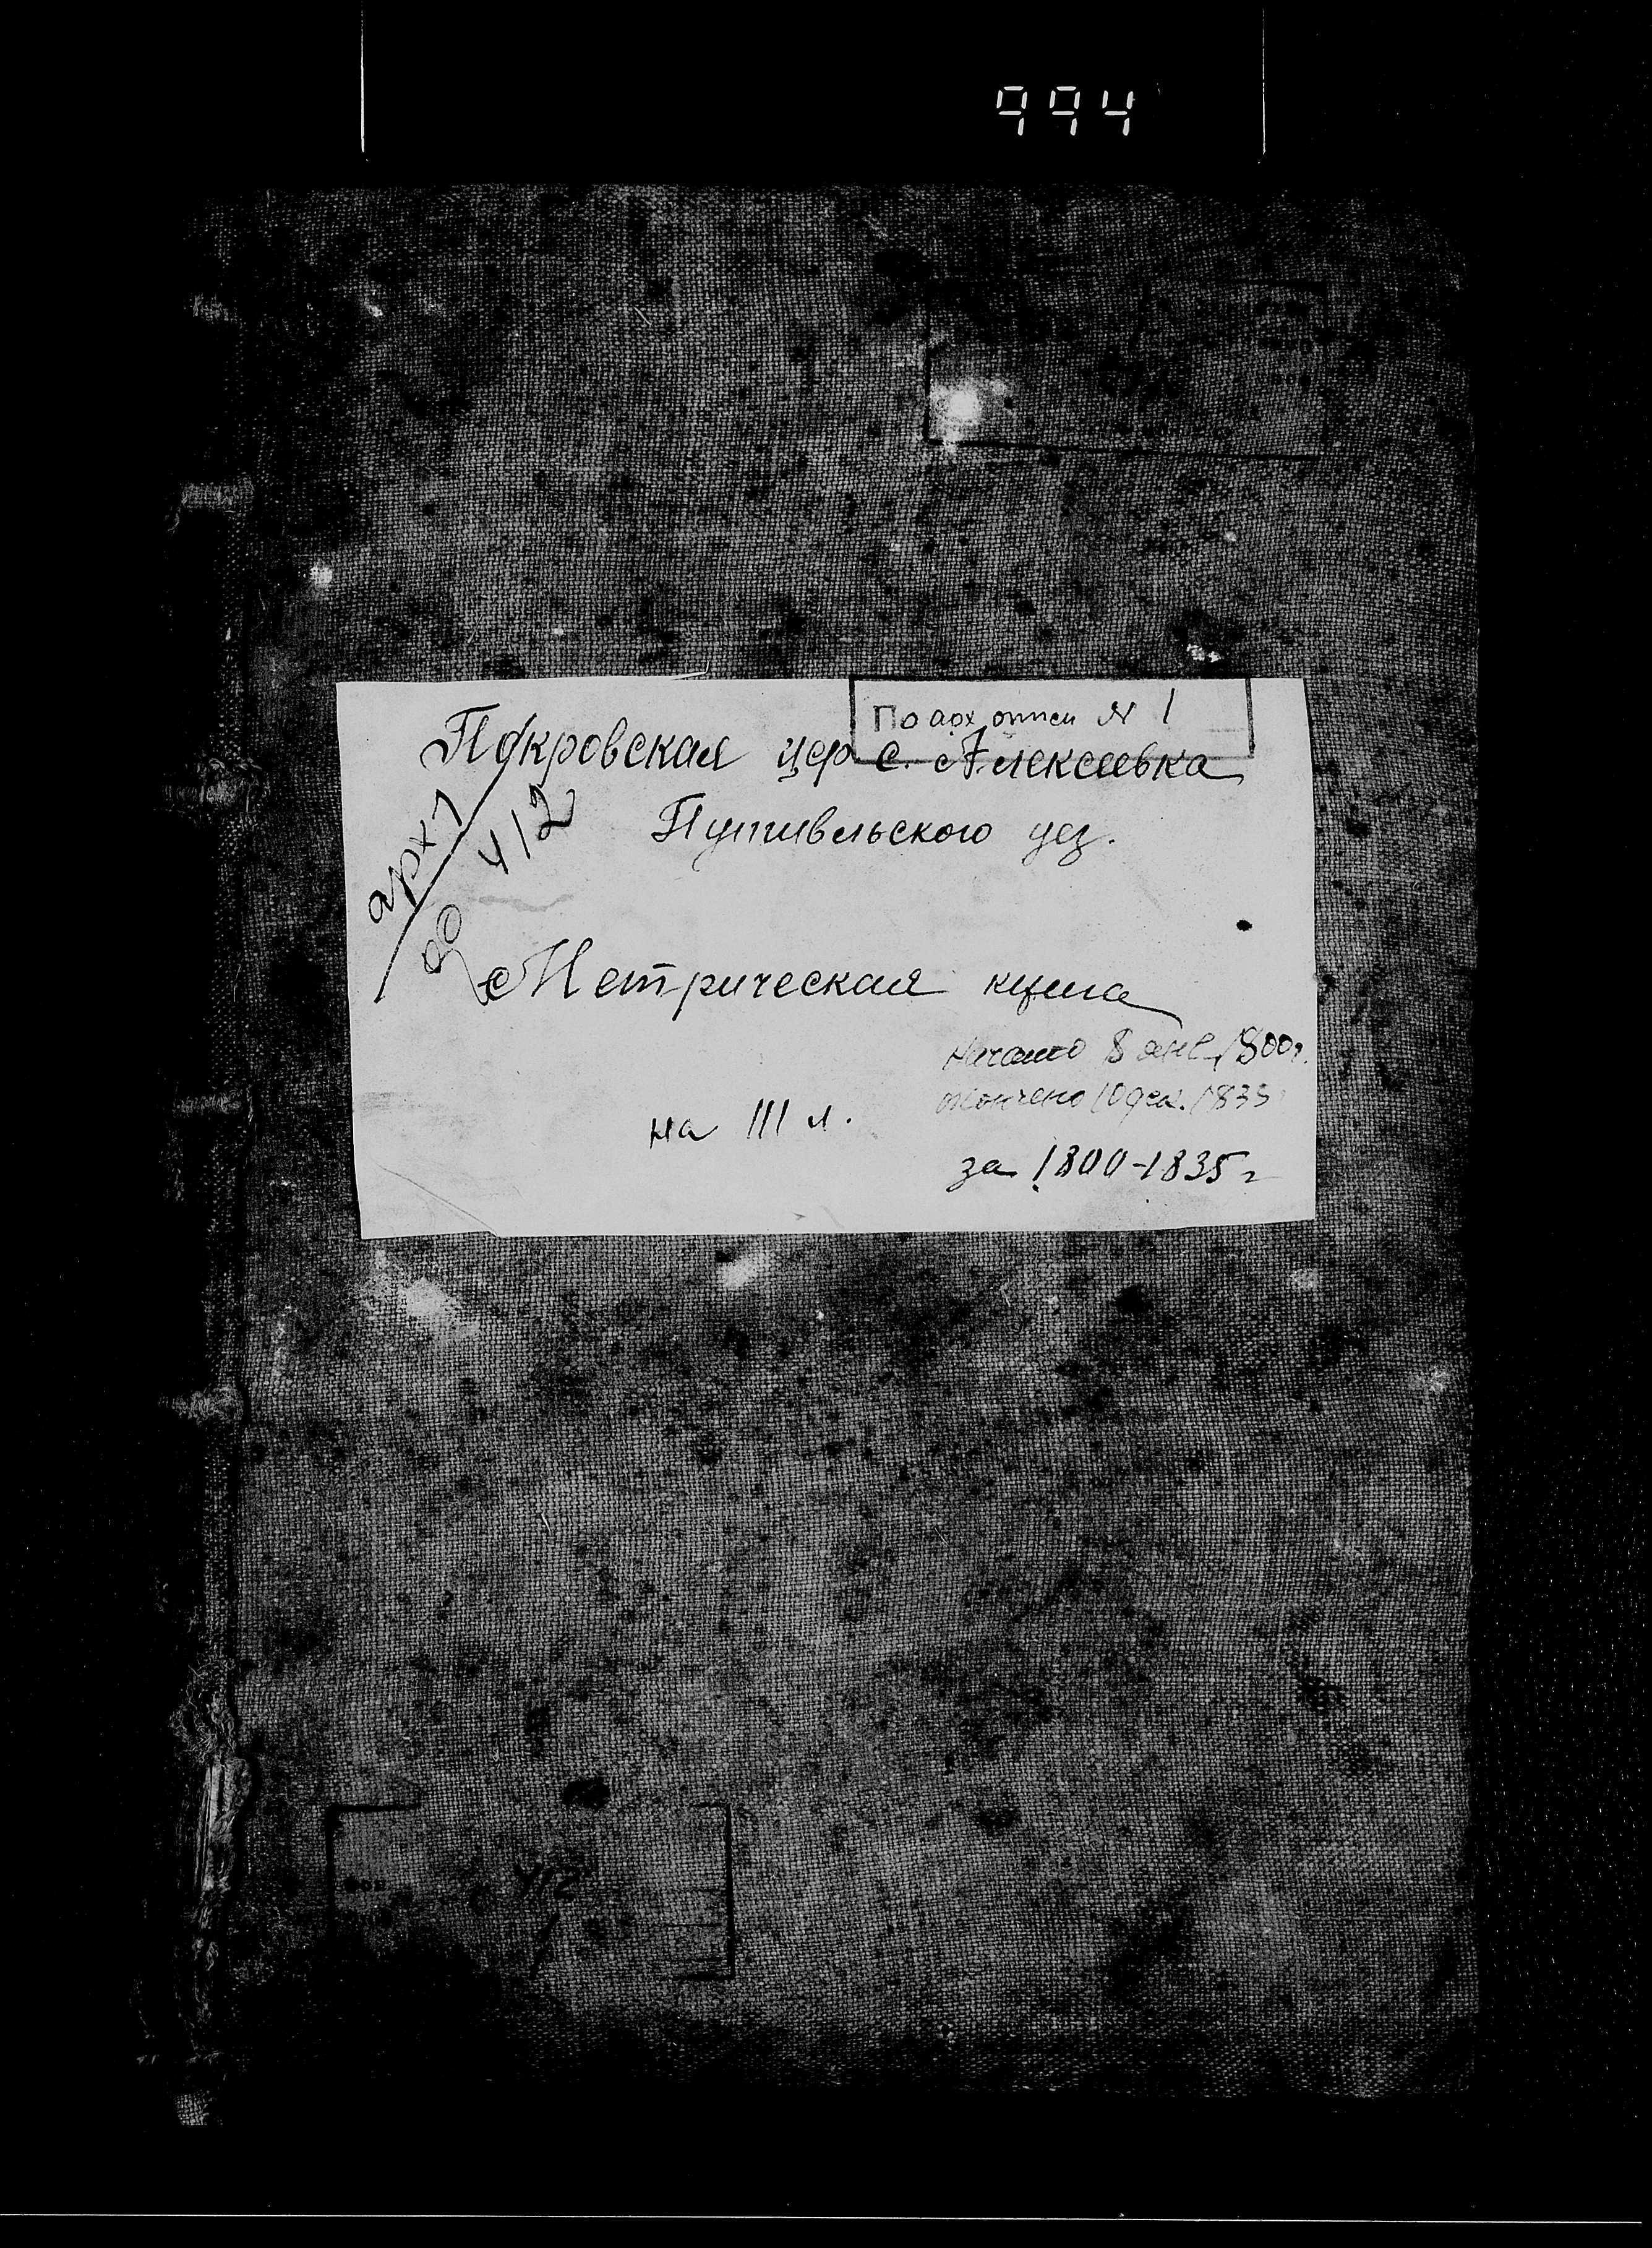 994
По арх. описи № 1
Покровская цер. с. Алексеевка
Путивльского уез.
арх 1
412
Метрическая книга
Начато 8 янв. 1800г.
окончено 10 дек. 1835
на 111 л.
за 1800-1835г
412
1